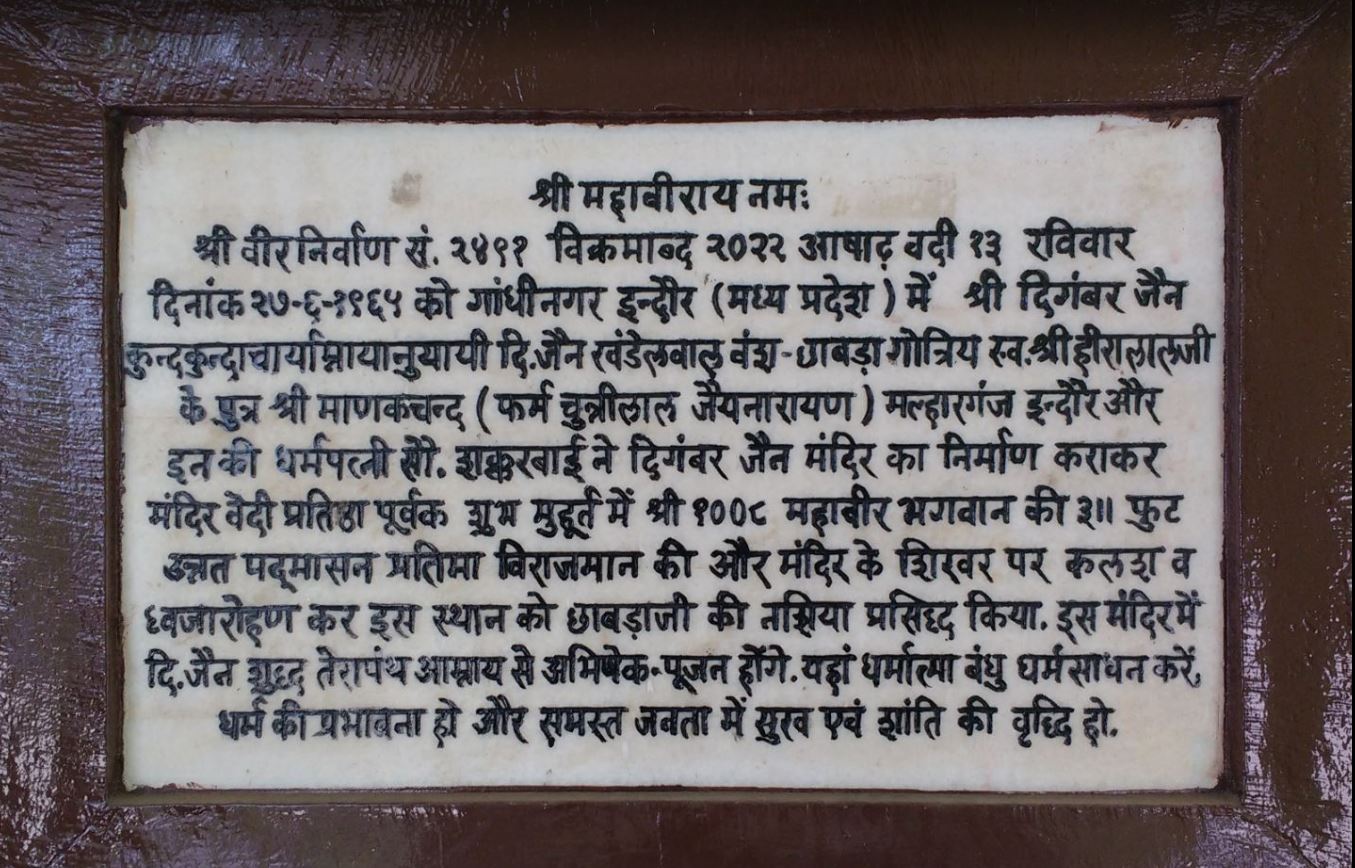 श्री महावीराय नमः
श्री वीरनिर्वाण सं. २४९१ विक्रमाब्द २०२२ आषाढ़ वदी १३ रविवार
दिनांक २७-६-१९६५ को गांधीनगर इन्दौर (मध्य प्रदेश) में श्री दिगंबर जैन
कुन्दकुन्दाचार्याम्नायानुयायी दि.जैन खंडेलवाल वंश-छाबड़ा गोत्रिय स्व.श्री हीरालालजी
के पुत्र श्री माणकचन्द (फर्म चुन्नीलाल जैयनारायण) मल्हारगंज इन्दौर और
इन की धर्मपत्नी सौ. शक्करबाई ने दिगंबर जैन मंदिर का निर्माण कराकर
मंदिर वेदी प्रतिष्ठा पूर्वक शुभ मुहूर्त में श्री १००८ महावीर भगवान की ३॥ फुट
उन्नत पद्मासन प्रतिमा विराजमान की और मंदिर के शिखर पर कलश व
ध्वजारोहण कर इस स्थान को छाबड़ाजी की नशिया प्रसिद्ध किया. इस मंदिर में
दि.जैन शुद्ध तेरापंथ आम्नाय से अभिषेक-पूजन होंगे. यहां धर्मात्मा बंधु धर्मसाधन करें,
धर्म की प्रभावना हो और समस्त जनता में सुख एवं शांति की वृद्धि हो.